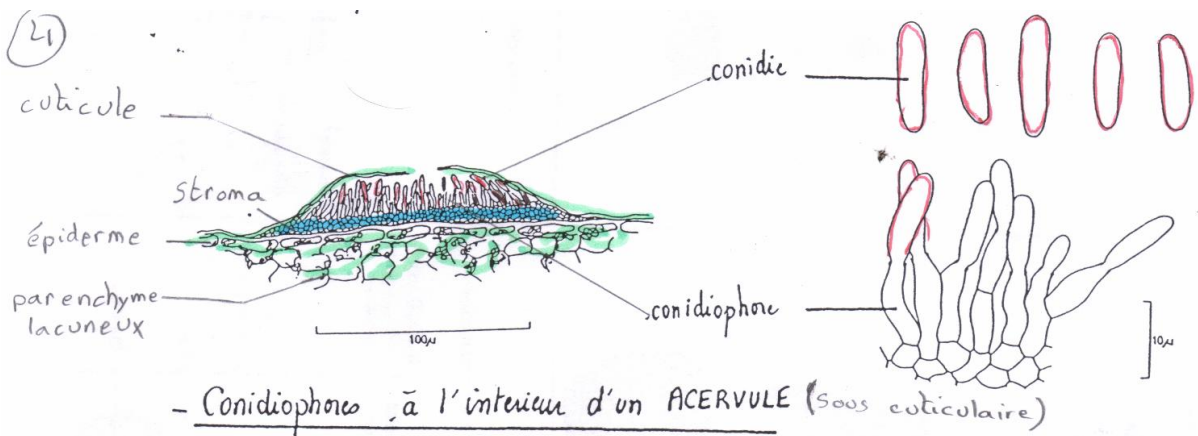 21
cuticule
conidie
stroma
épiderme
parenchyme
lacuneux
conidiophore
100µ
10µ
- Conidiophores à l'interieur d'un ACERVULE (sous cuticulaire)